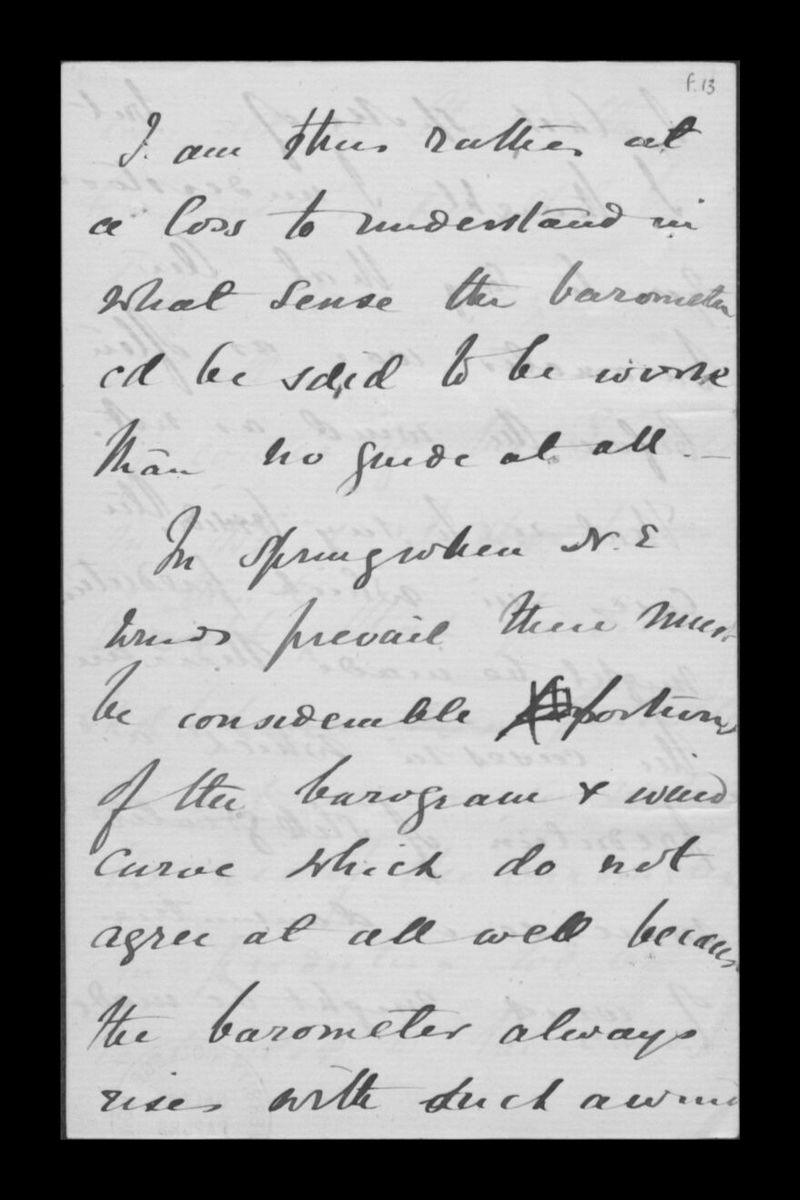 f. 13
I am thus rather at
a loss to understand in
what sense the barometer
cd be said to be worse
than no guide at all. —
In Spring when N. E
winds prevail there must
be considerable portions
of the barogram & wind
curve which do not
agree at all well because
the barometer always
rises with such a wind